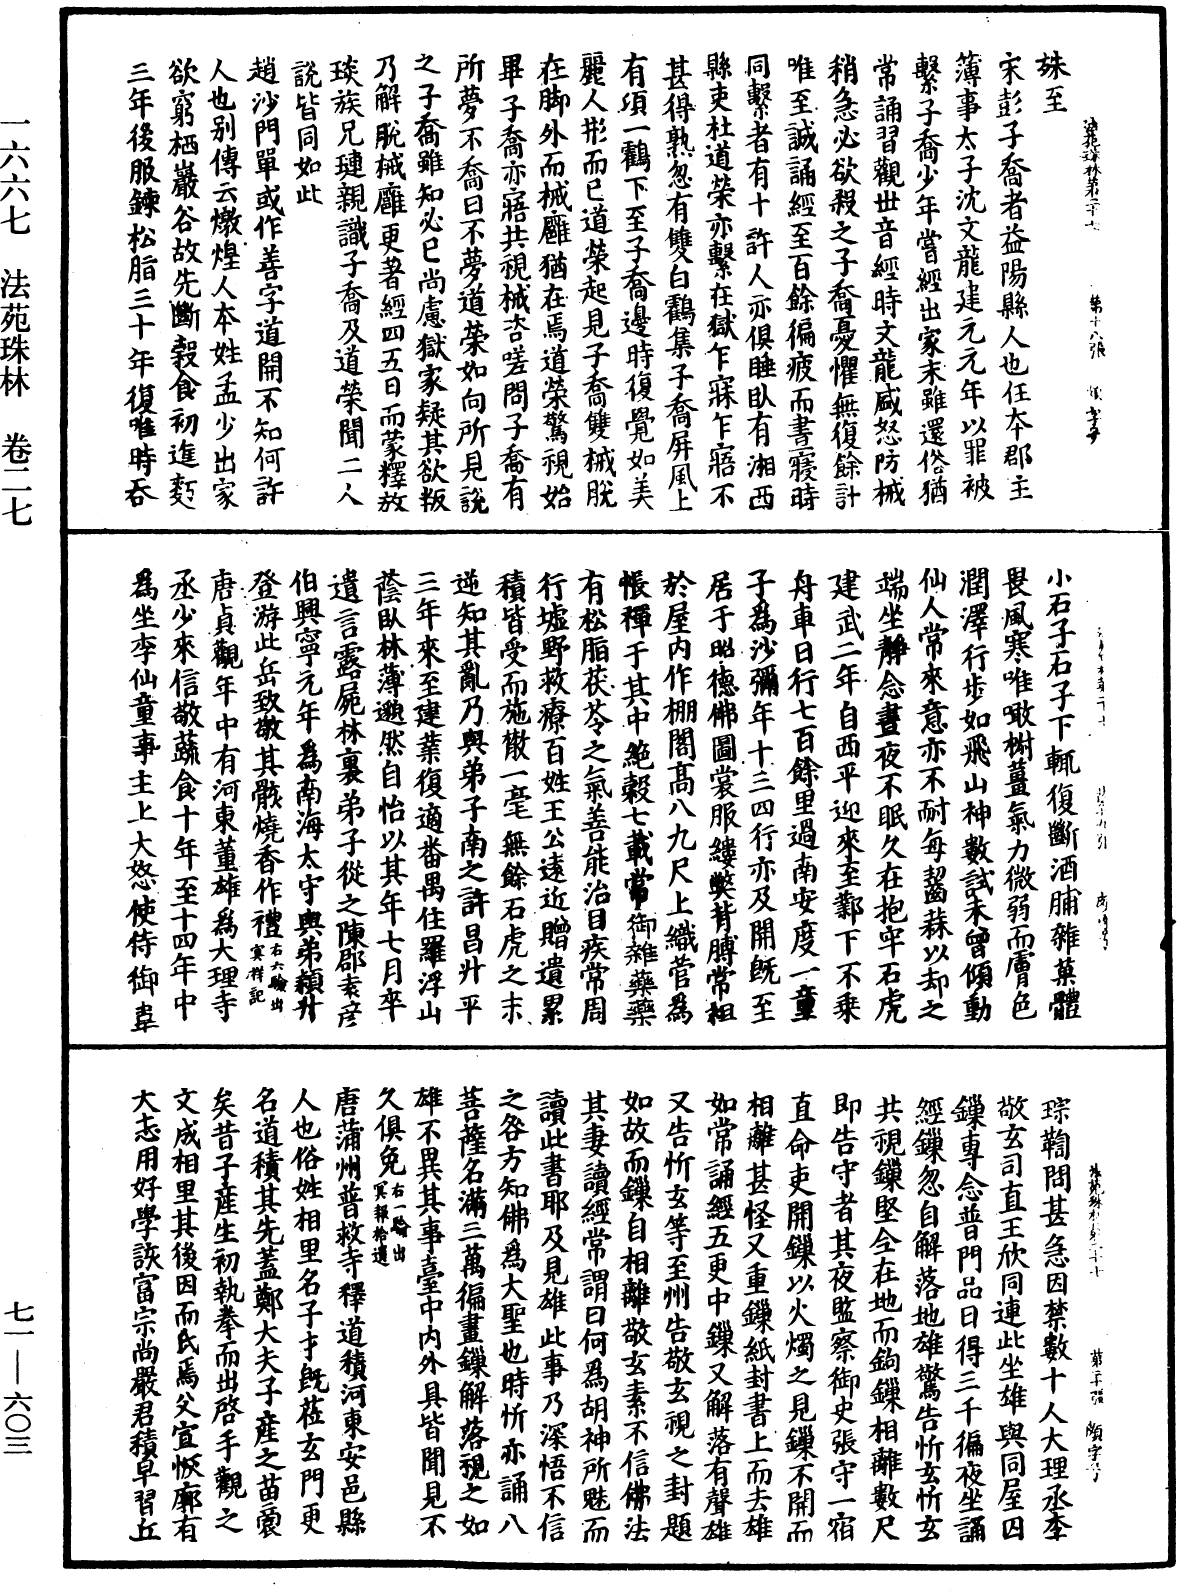 一六六七　法苑珠林　卷二七
七一—六〇三
法苑珠林卷二十七　第十八張
殊至
宋彭子喬者益陽縣人也任本郡主
簿事太子沈文龍建元元年以罪被
繫子喬少年嘗經出家末雖還俗猶
常誦習觀世音經時文龍盛怒防械
稍急必欲殺之子喬憂懼無復餘計
唯至誠誦經至百餘徧疲而晝寢時
同繫者有十許人亦俱睡臥有湘西
縣吏杜道榮亦繫在獄乍寐乍寤不
甚得熟忽有雙白鶴集子喬屏風上
有頃一鶴下至子喬邊時復覺如美
麗人形而已道榮起見子喬雙械脫
在脚外而械癰猶在焉道榮驚視始
畢子喬亦寤共視械咨嗟問子喬有
所夢不喬曰不夢道榮如向所見說
之子喬雖知必已尚慮獄家疑其欲叛
乃解脫械癰更著經四五日而蒙釋放
琰族兄璉親識子喬及道榮聞二人
說皆同如此
趙沙門單或作善字道開不知何許
人也別傳云燉煌人本姓孟少出家
欲窮栖巖谷故先斷穀食初進麪
三年後服鍊松脂三十年復唯時吞
小石子石子下輒復斷酒脯雜菓體
畏風寒唯噉椒薑氣力微弱而膚色
潤澤行步如飛山神數試未曾傾動
仙人常來意亦不耐每齧蒜以却之
端坐靜念晝夜不眠久在抱罕石虎
建武二年自西平迎來至鄴下不乘
舟車日行七百餘里過南安度一童
子為沙彌年十三四行亦及開既至
居于昭德佛圖裳服縷弊背膊常袒
於屋內作棚閣高八九尺上織菅為
帳禪于其中絕穀七載常御雜藥藥
有松脂茯苓之氣善能治目疾常周
行墟野救療百姓王公遠近贈遺累
積皆受而施散一毫無餘石虎之末
逆知其亂乃與弟子南之許昌升平
三年來至建業復適番禺住羅浮山
蔭臥林薄邈然自怡以其年七月卒
遺言露屍林裏弟子從之陳郡袁彥
伯興寧元年為南海太守與弟穎升
登游此岳致敬其骸燒香作禮右六驗出冥祥記
唐貞觀年中有河東董雄為大理寺
丞少來信敬蔬食十年至十四年中
為坐李仙童事主上大怒使侍御韋
琮鞫問甚急因禁數十人大理丞李
敬玄司直王欣同連此坐雄與同屋囚
鏁專念普門品日得三千徧夜坐誦
經鏁忽自解落地雄驚告忻玄忻玄
共視鏁堅全在地而鉤鏁相離數尺
即告守者其夜監察御史張守一宿
直命吏開鏁以火燭之見鏁不開而
相離甚怪又重鏁紙封書上而去雄
如常誦經五更中鏁又解落有聲雄
又告忻玄等至州告敬玄視之封題
如故而鏁自相離敬玄素不信佛法
其妻讀經常謂曰何為胡神所魅而
讀此書耶及見雄此事乃深悟不信
之咎方知佛為大聖也時忻亦誦八
菩薩名滿三萬徧晝鏁解落視之如
雄不異其事臺中內外具皆聞見不
久俱免右一驗出冥報拾遺
唐蒲州普救寺釋道積河東安邑縣
人也俗姓相里名子才既莅玄門更
名道積其先蓋鄭大夫子產之苗裔
矣昔子產生初執拳而出啓手觀之
文成相里其後因而氏焉父宣恢廓有
大志用好學該富宗尚嚴君積早習丘